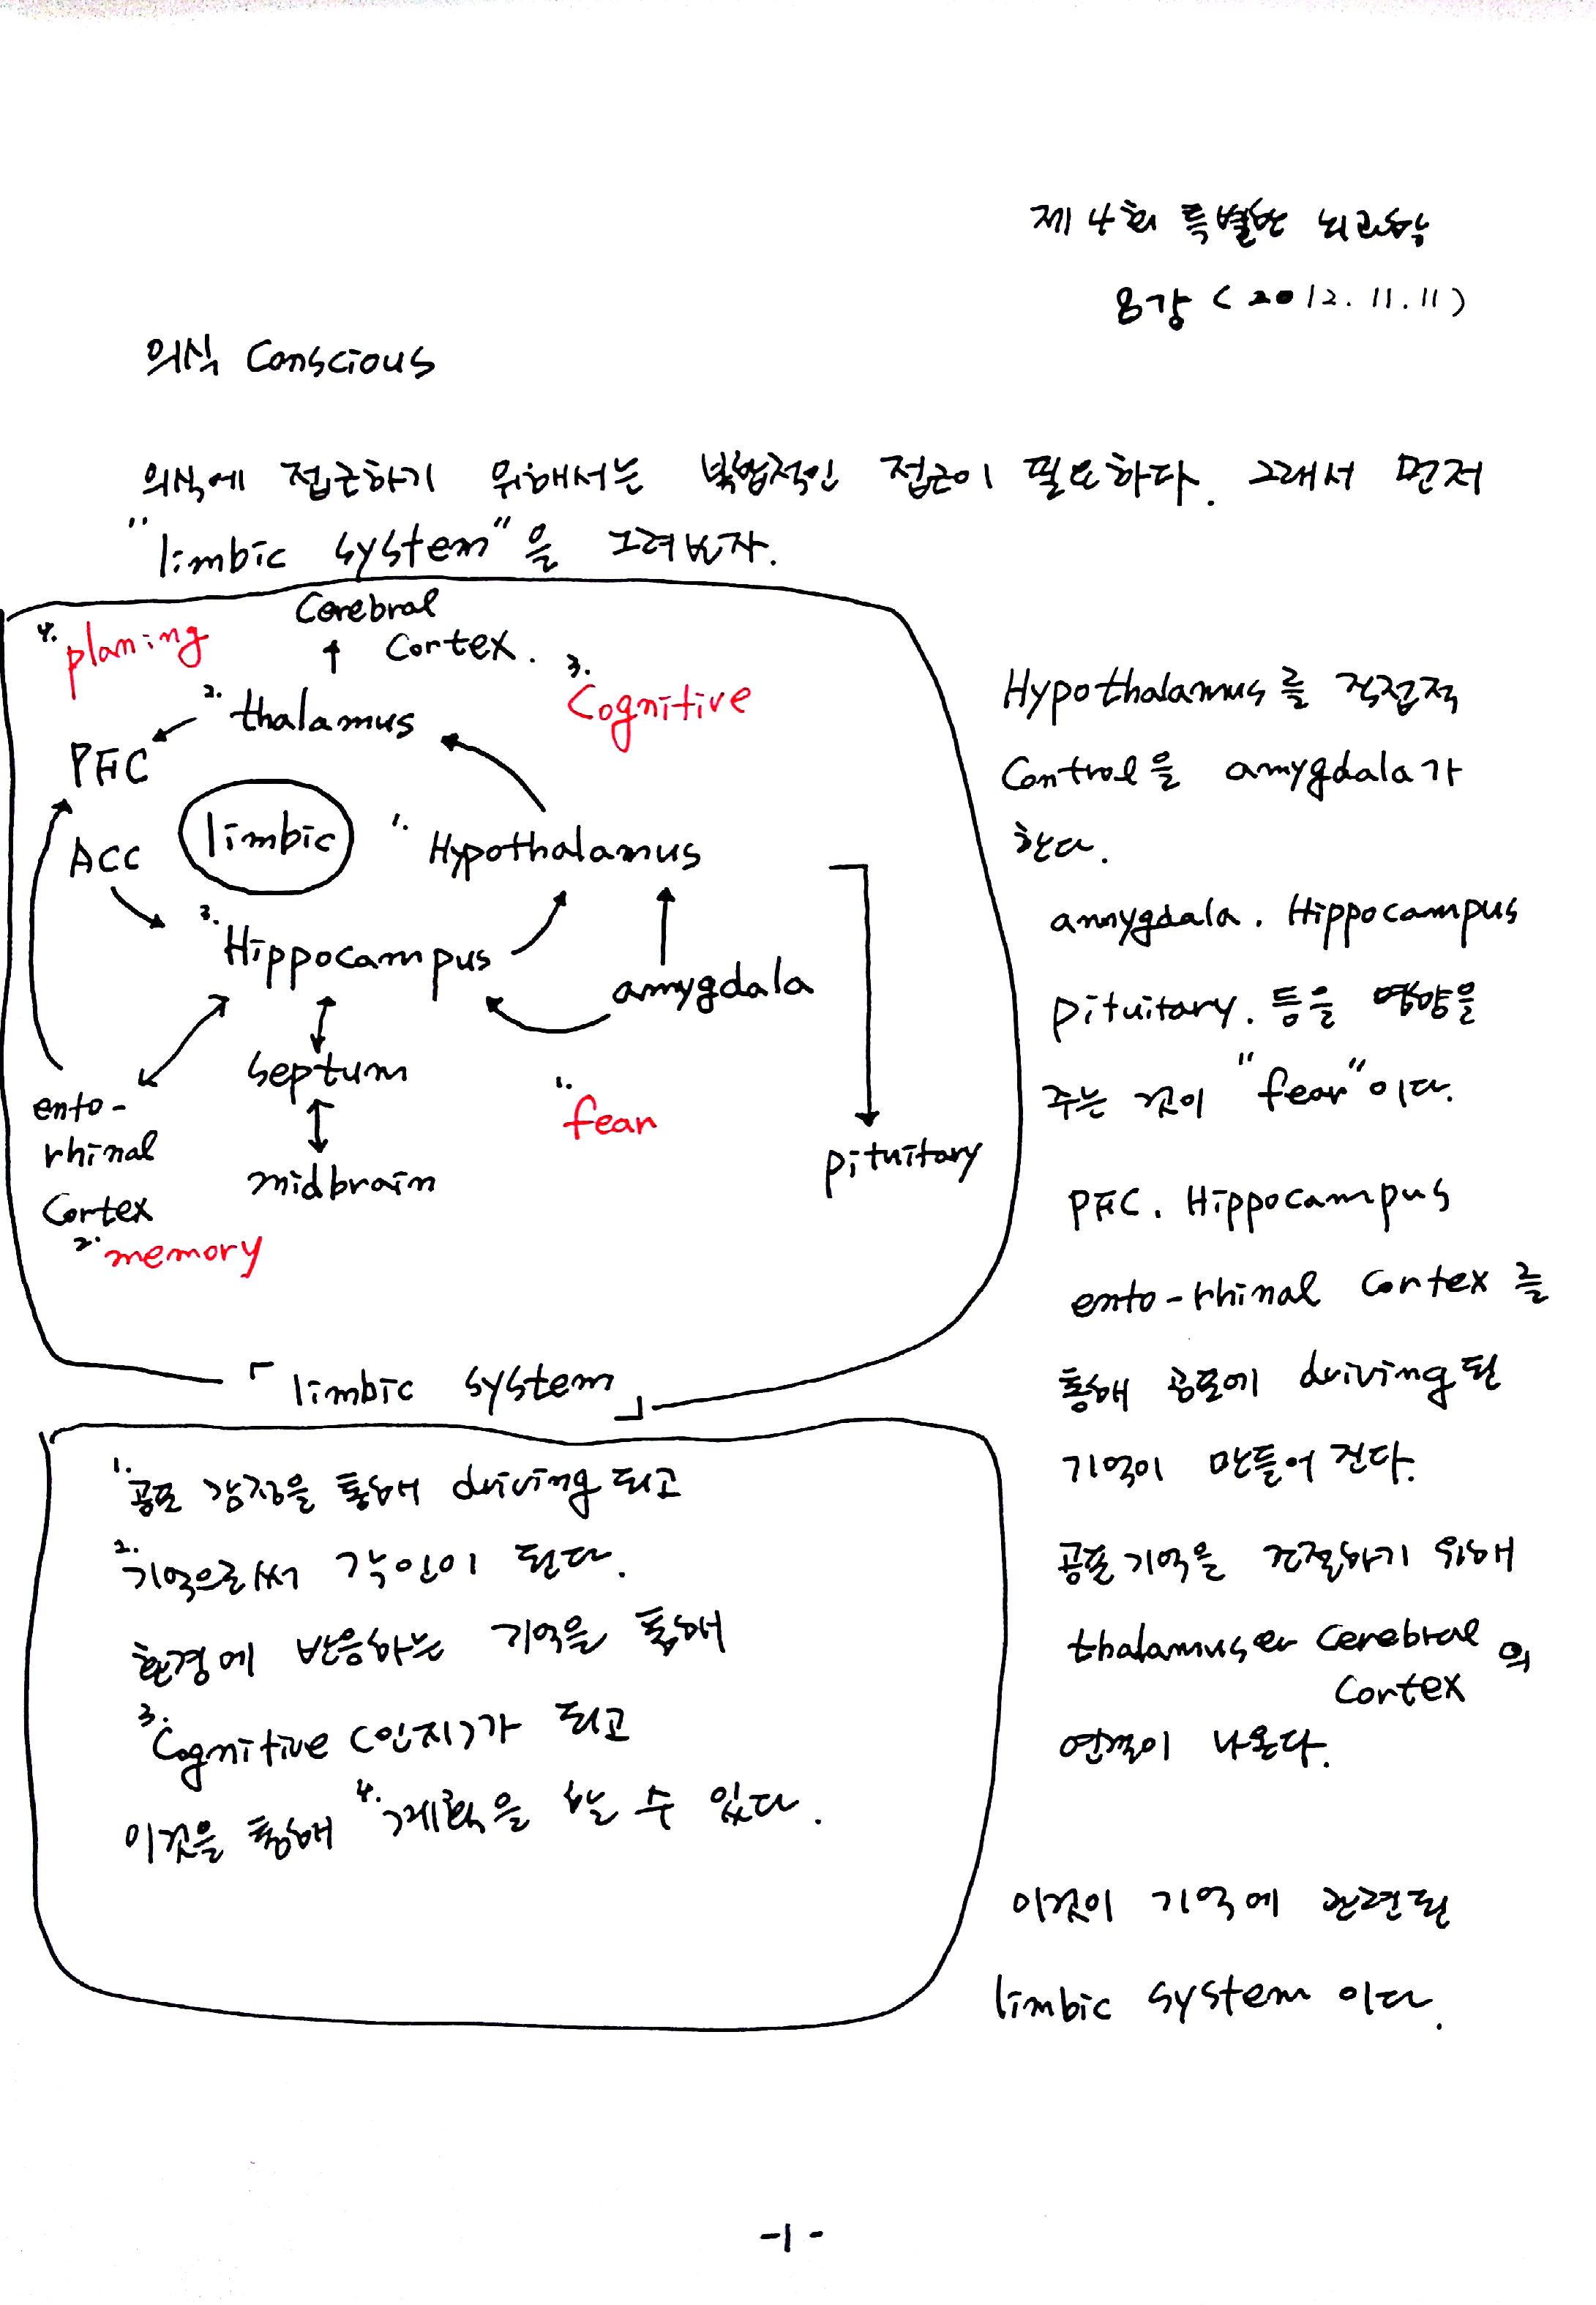 제 4회 특별한 뇌과학
8강 (2012.11.11)
의식 Conscious
의식에 접근하기 위해서는 복합적인 접근이 필요하다. 그래서 먼저
"limbic system"을 그려보자.
Cerebral
Cortex.
4. planing
3. Cognitive
2. thalamus
PFC
limbic
ACC
1. Hypothalamus
3. Hippocampus
amygdala
septum
ento-
rhinal
Cortex
1. fear
midbrain
pituitary
2. memory
「limbic system」
Hypothalamus를 직접적
Control을 amygdala가
한다.
amygdala. Hippocampus
pituitary. 등을 영향을
주는 것이 "fear"이다.
PFC. Hippocampus
ento-rhinal Cortex를
통해 공포에 driving된
기억이 만들어 진다.
공포기억을 조절하기 위해
thalamus와 Cerebral
Cortex의
연결이 나온다.
이것이 기억에 관련된
limbic system 이다.
1. 공포 감정을 통해 driving되고
2. 기억으로써 각인이 된다.
환경에 반응하는 기억을 통해
3. Cognitive (인지)가 되고
이것을 통해 4. 계획을 할 수 있다.
-1-